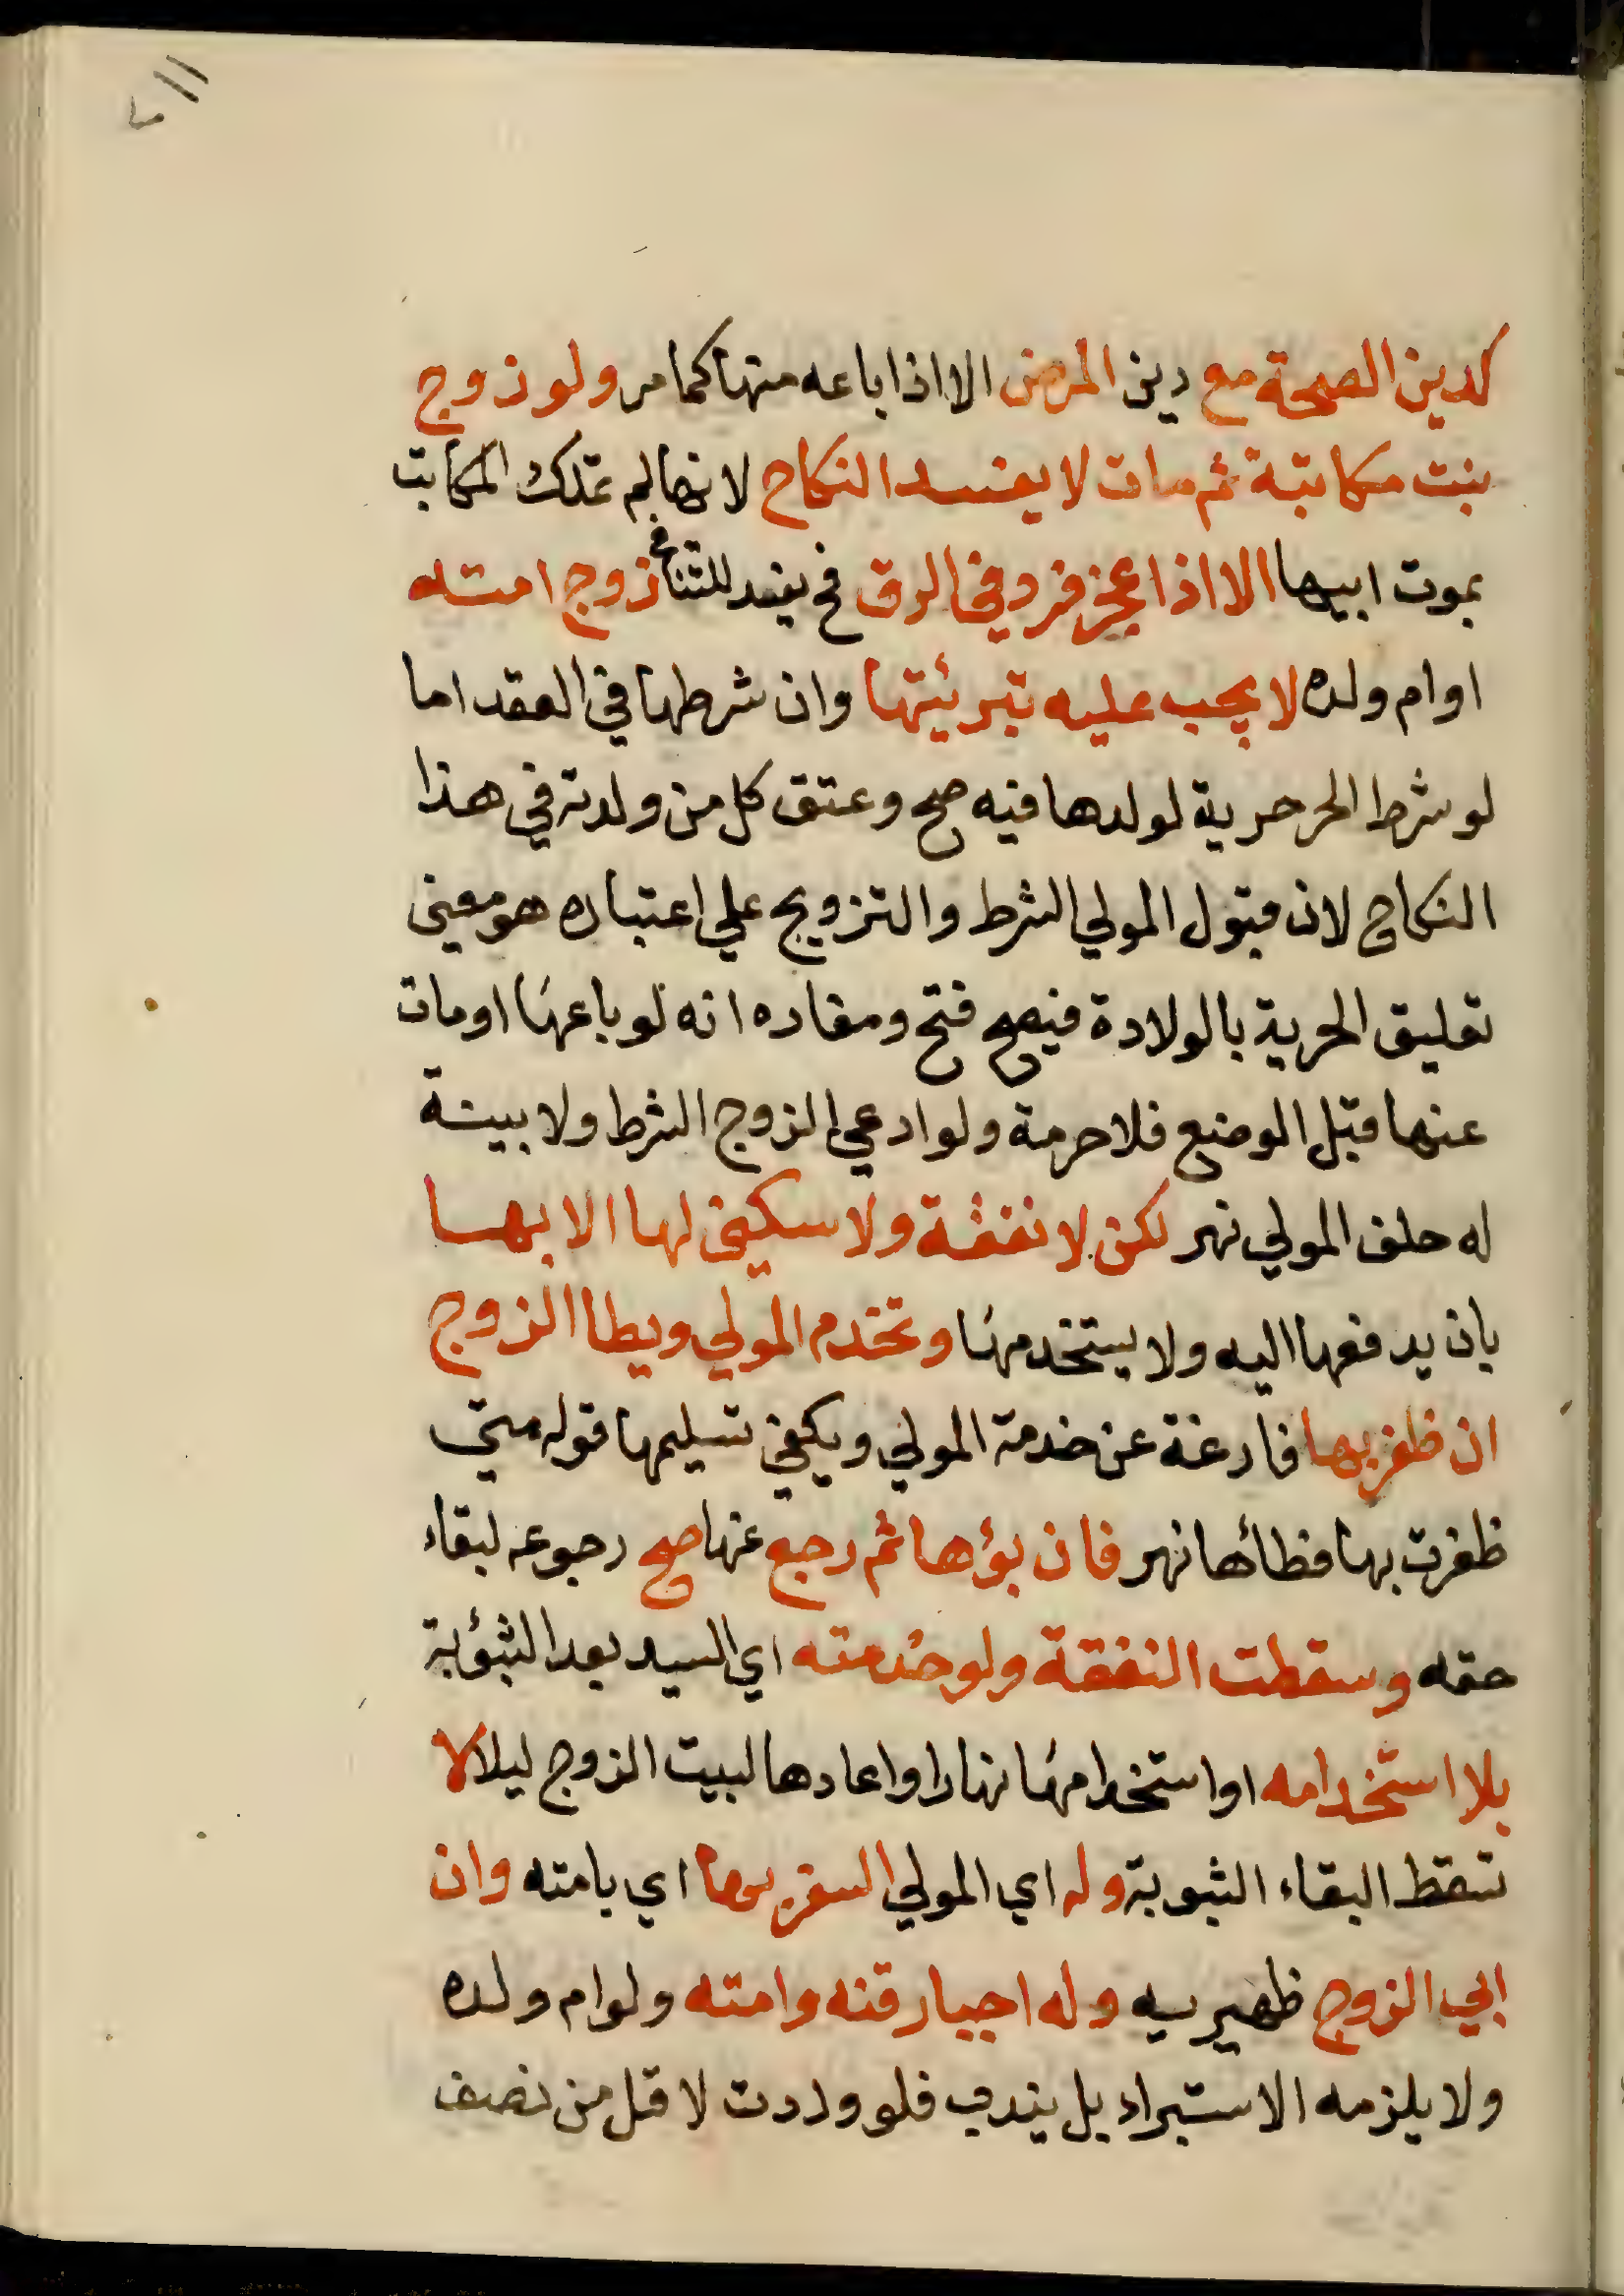 ١١٧
كدين الصحة مع دين المرض الا اذا باعه منها كما مر ولو زوج
بنت مكاتبة ثم مات لا يفسد النكاح لانها لم تملك المكاتب
بموت ابيها الا اذا عجز فرد في الرق فح يفسد للتنافي زوج امته
او ام ولده لا يجب عليه تبرئتها وان شرطها في العقد اما
لو شرط الحر حرية لولدها فيه صح وعتق كل من ولدته في هذا
النكاح لان قبول المولي الشرط والتزويج علي اعتباره هو معنى
تعليق الحرية بالولادة فيصح فتح ومفاده انه لو باعها او مات
عنها قبل الوضع فلا حرمة ولو ادعي الزوج الشرط ولا بينة
له حلف المولي نهر لكن لا نفقة ولا سكنى لها الا بها
بان يدفعها اليه ولا يستخدمها وتخدم المولي ويطا الزوج
ان ظفر بها فارغة عن خدمة المولي ويكفي تسليمها قوله متي
ظفرت بها فطأها نهر فان بؤها ثم رجع عنها صح رجوعه لبقاء
حقه وسقطت النفقة ولو خدمته اي السيد بعد التبؤية
بلا استخدامه او استخدامها نهارا واعادها لبيت الزوج ليلا لا
تسقط البقاء التبوية وله اي المولي السفر بها اي بامته وان
ابي الزوج ظهيريه وله اجبار قنه وامته ولو ام ولده
ولا يلزمه الاستبراء بل يندب فلو ولدت لاقل من نصف